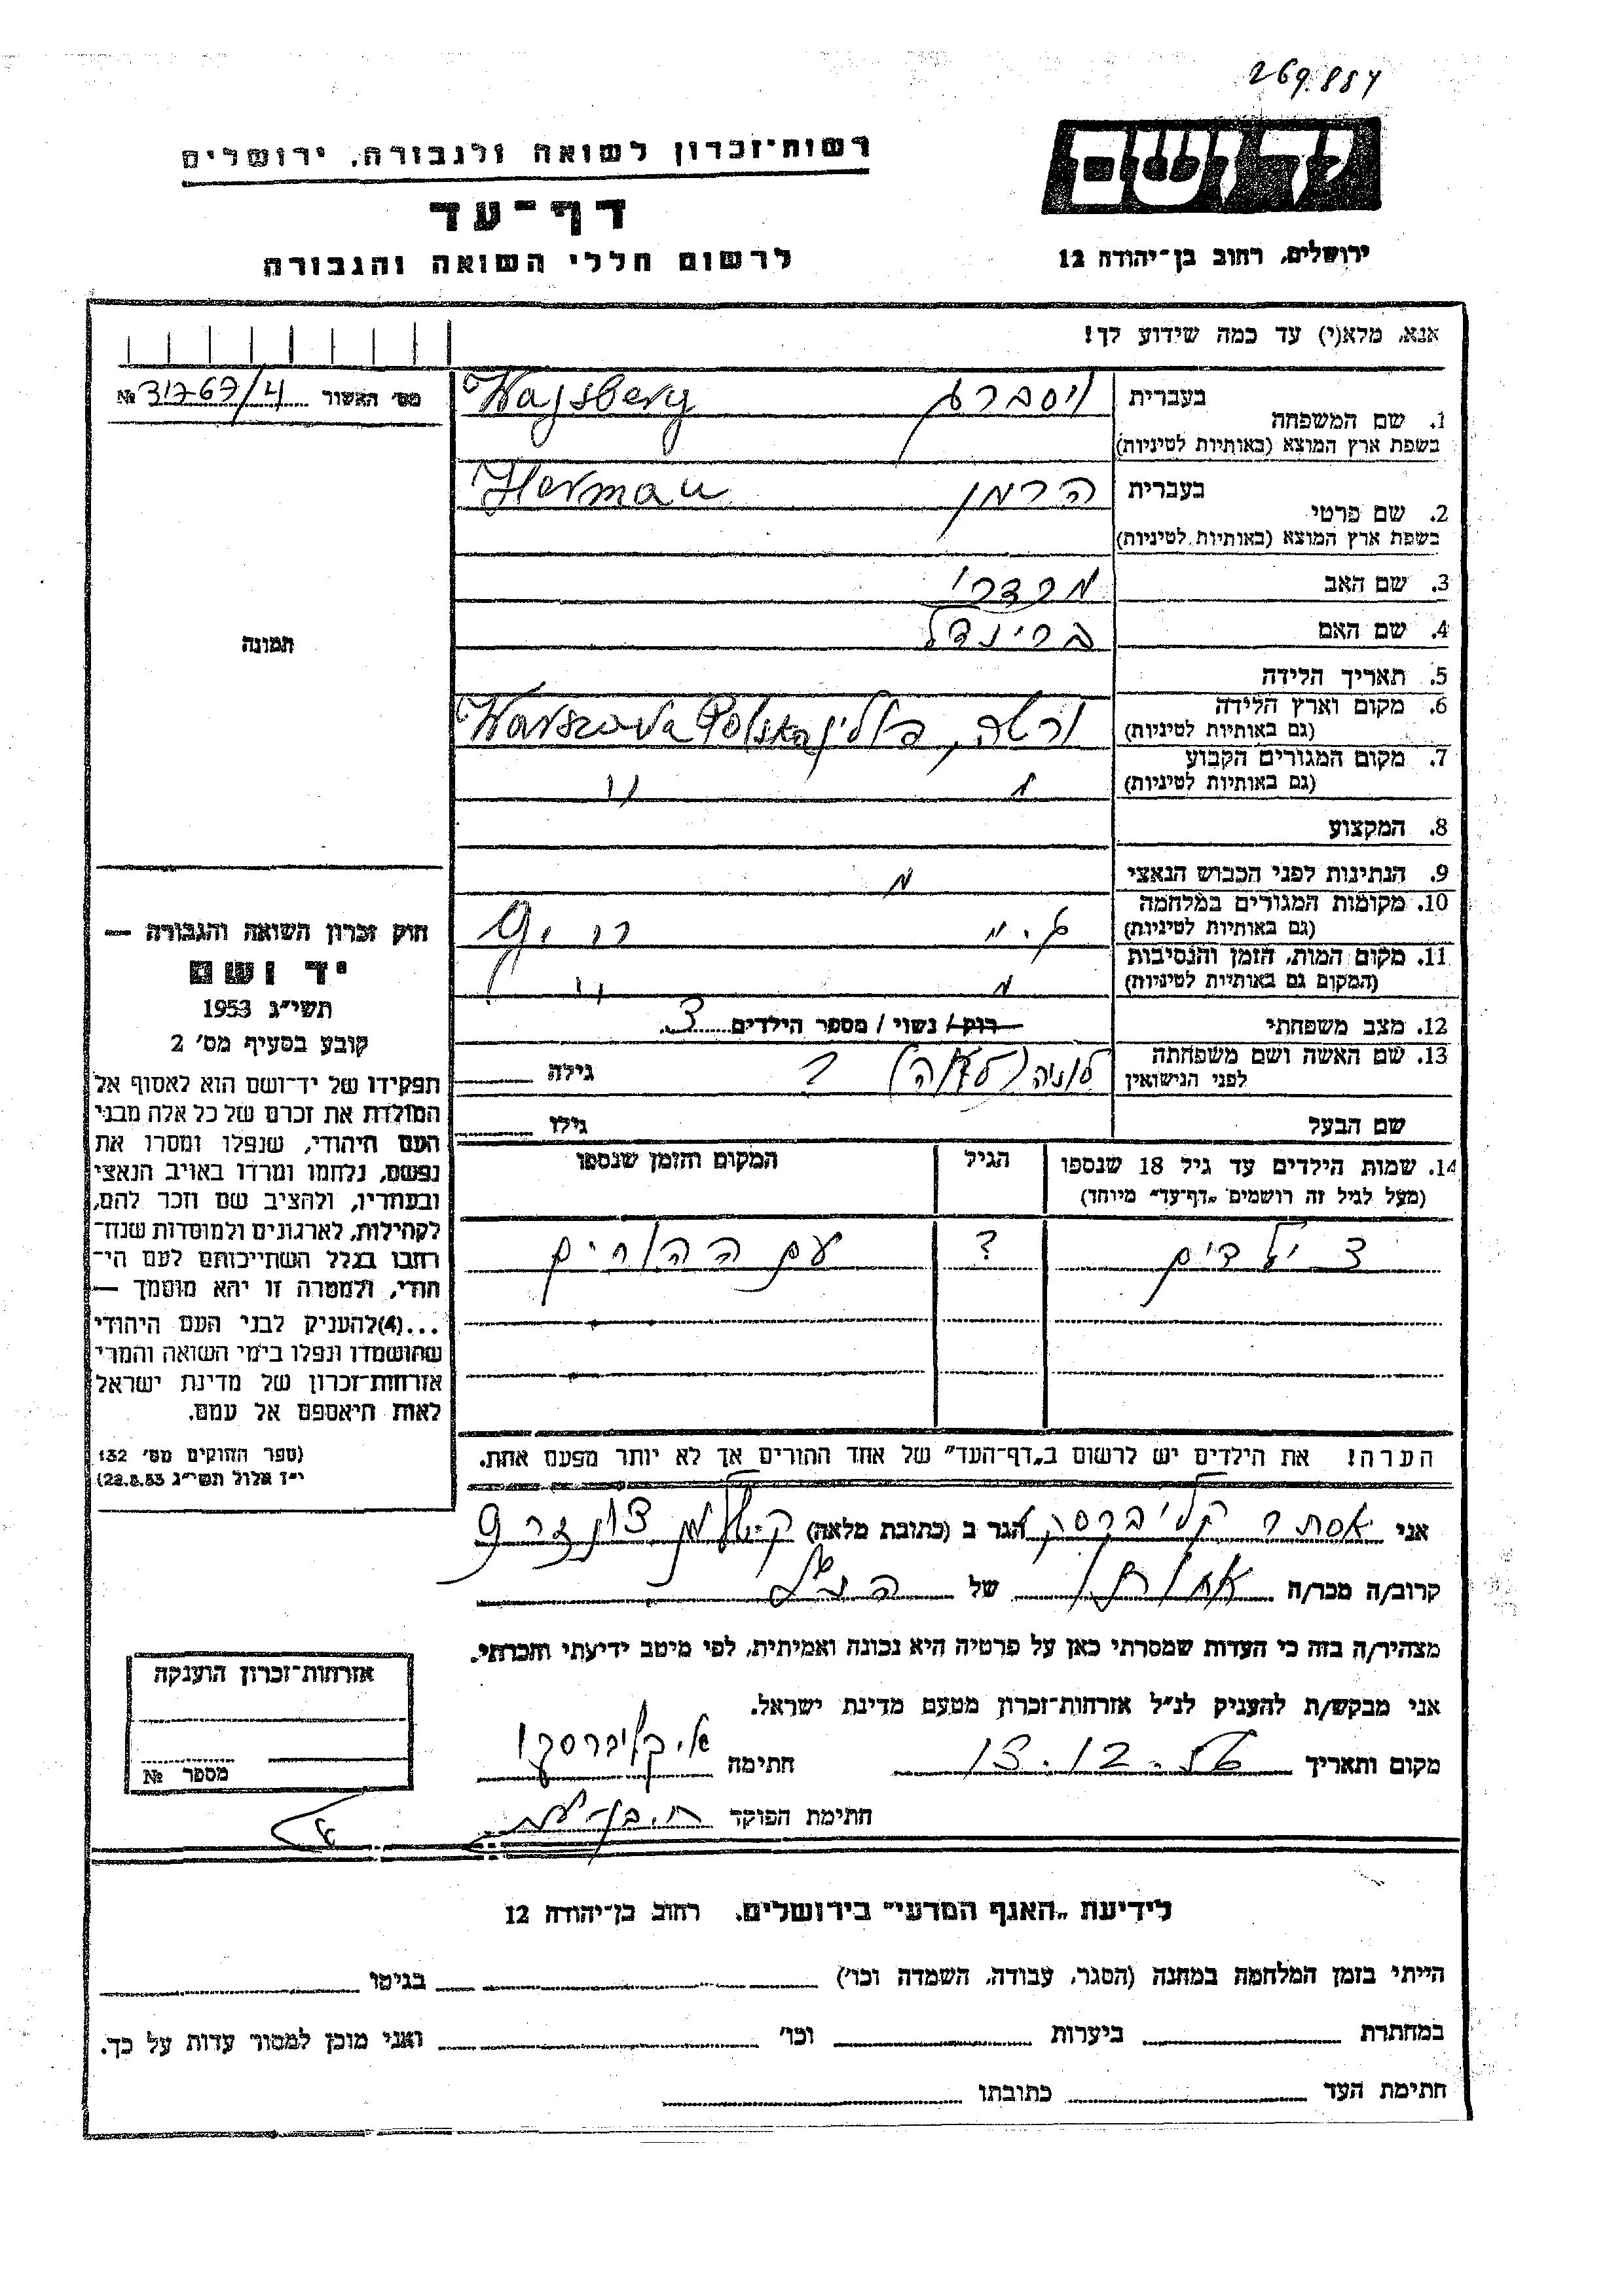 269.887
רשות־זכרון לשואה ולגבורה, ירושלים
דף־עד
לרשום חללי השואה והגבורה
ירושלים, רחוב בן־יהודה 12
אנא, מלא(י) עד כמה שידוע לך!
מס׳ האשור 31767/4 №
תמונה
1. שם המשפחה
בעברית ויסברג Wajsberg
בשפת ארץ המוצא (באותיות לטיניות)
2. שם פרטי
בעברית הרמן Herman
בשפת ארץ המוצא (באותיות לטיניות)
3. שם האב מרדכי
4. שם האם בריינדל
5. תאריך הלידה
6. מקום וארץ הלידה
(גם באותיות לטיניות) ורשה, פולין Warszawa Polska
7. מקום המגורים הקבוע
(גם באותיות לטיניות) " "
8. המקצוע
9. הנתינות לפני הכבוש הנאצי
10. מקומות המגורים במלחמה
(גם באותיות לטיניות)
11. מקום המות, הזמן והנסיבות
(המקום גם באותיות לטיניות)
12. מצב משפחתי רוק / נשוי / מספר הילדים 3
13. שם האשה ושם משפחתה
לפני הנישואין ? גילה
שם הבעל גילו
14. שמות הילדים עד גיל 18 שנספו הגיל המקום והזמן שנספו
(מעל לגיל זה רושמים „דף־עד" מיוחד)
3 ילדים ? עם ההורים
הערה! את הילדים יש לרשום ב„דף־העד" של אחד ההורים אך לא יותר מפעם אחת.
חוק זכרון השואה והגבורה —
יד ושם
תשי״ג 1953
קובע בסעיף מס׳ 2
תפקידו של יד־ושם הוא לאסוף אל
המולדת את זכרם של כל אלה מבני
העם היהודי, שנפלו ומסרו את
נפשם, נלחמו ומרדו באויב הנאצי
ובעוזריו, ולהציב שם וזכר להם,
לקהילות, לארגונים ולמוסדות שנח־
רבו בגלל השתייכותם לעם הי־
הודי, ולמטרה זו יהא מוסמך —
...(4)להעניק לבני העם היהודי
שהושמדו ונפלו בימי השואה והמרי
אזרחות־זכרון של מדינת ישראל
לאות היאספם אל עמם.
(ספר החוקים מס׳ 132
י״ז אלול תשי״ג 22.8.53)
אני אסתר קליברסקי הגר ב (כתובת מלאה)
קרוב/ה מכר/ה אחות של הנ״ל
מצהיר/ה בזה כי העדות שמסרתי כאן על פרטיה היא נכונה ואמיתית, לפי מיטב ידיעתי והכרתי.
אני מבקש/ת להעניק לנ״ל אזרחות־זכרון מטעם מדינת ישראל.
מקום ותאריך 13.12.56 חתימה א. קליברסקי
חתימת הפוקד
אזרחות־זכרון הוענקה
מספר №
לידיעת „האגף המדעי" בירושלים, רחוב בן־יהודה 12
הייתי בזמן המלחמה במחנה (הסגר, עבודה, השמדה וכו׳) בגיטו
במחתרת ביערות וכו׳ ואני מוכן למסור עדות על כך.
חתימת העד כתובתו